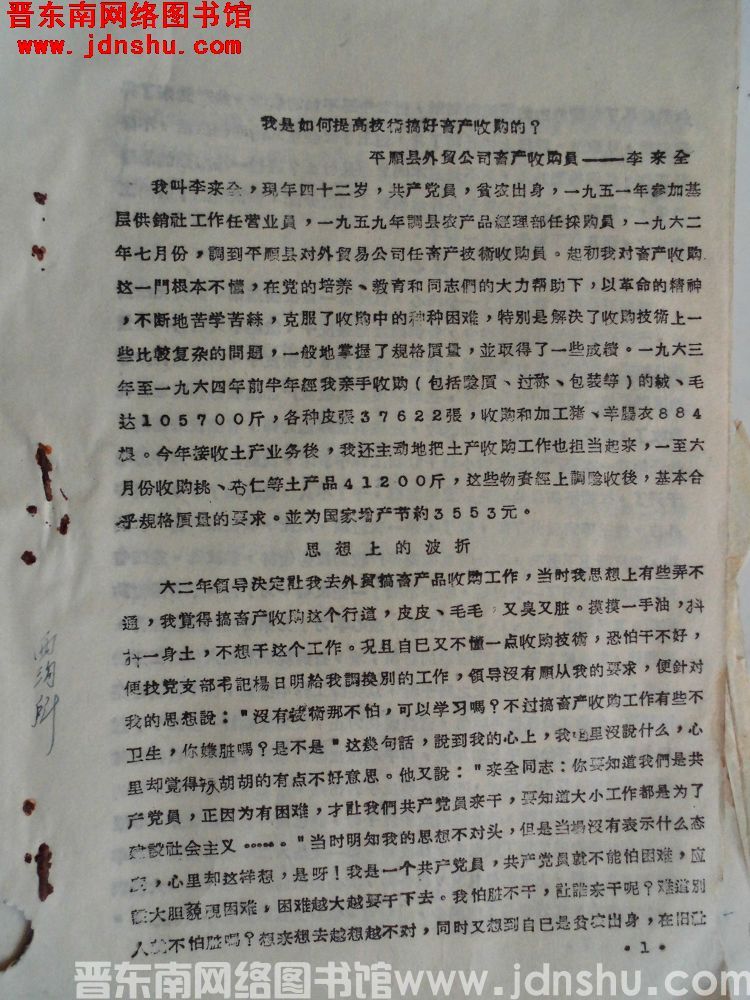 晋东南网络图书馆
www.jdnshu.com
我是如何提高技術搞好畜产收购的？
平順县外貿公司畜产收购員——李来全
我叫李来全，現年四十二岁，共产党員，貧农出身，一九五一年参加基
层供銷社工作任营业員，一九五九年調县农产品經理部任採购員，一九六二
年七月份，調到平順县对外貿易公司任畜产技術收购員。起初我对畜产收购
这一門根本不懂，在党的培养、教育和同志們的大力帮助下，以革命的精神
，不断地苦学苦練，克服了收购中的种种困难，特別是解決了收购技術上一
些比較复杂的問題，一般地掌握了規格質量，並取得了一些成績。一九六三
年至一九六四年前半年經我亲手收购（包括驗質、过称、包装等）的絨、毛
达105700斤，各种皮張37622張，收购和加工猪、羊腸衣884
根。今年接收土产业务後，我还主动地把土产收购工作也担当起来，一至六
月份收购桃、杏仁等土产品41200斤，这些物資經上調驗收後，基本合
乎規格質量的要求。並为国家增产节約3553元。
思想上的波折
六二年領导決定让我去外貿搞畜产品收购工作，当时我思想上有些弄不
通，我覚得搞畜产收购这个行道，皮皮、毛毛，又臭又脏。摸摸一手油，抖
抖一身土，不想干这个工作。況且自己又不懂一点收购技術，恐怕干不好，
便找党支部书記楊日明給我調換別的工作，領导沒有順从我的要求，便針对
我的思想說："沒有技術那不怕，可以学习嗎？不过搞畜产收购工作有些不
卫生，你嫌脏嗎？是不是"这幾句話，說到我的心上，我咀里沒說什么，心
里却覚得辣胡胡的有点不好意思。他又說："来全同志：你要知道我們是共
产党員，正因为有困难，才让我們共产党員来干，要知道大小工作都是为了
建設社会主义……。"当时明知我的思想不对头，但是当場沒有表示什么态
度，心里却这样想，是呀！我是一个共产党員，共产党員就不能怕困难，应
該大胆藐視困难，困难越大越要干下去。我怕脏不干，让誰来干呢？难道別
人就不怕脏嗎？想来想去越想越不对，同时又想到自己是貧农出身，在旧社
·1·
晋东南网络图书馆www.jdnshu.com